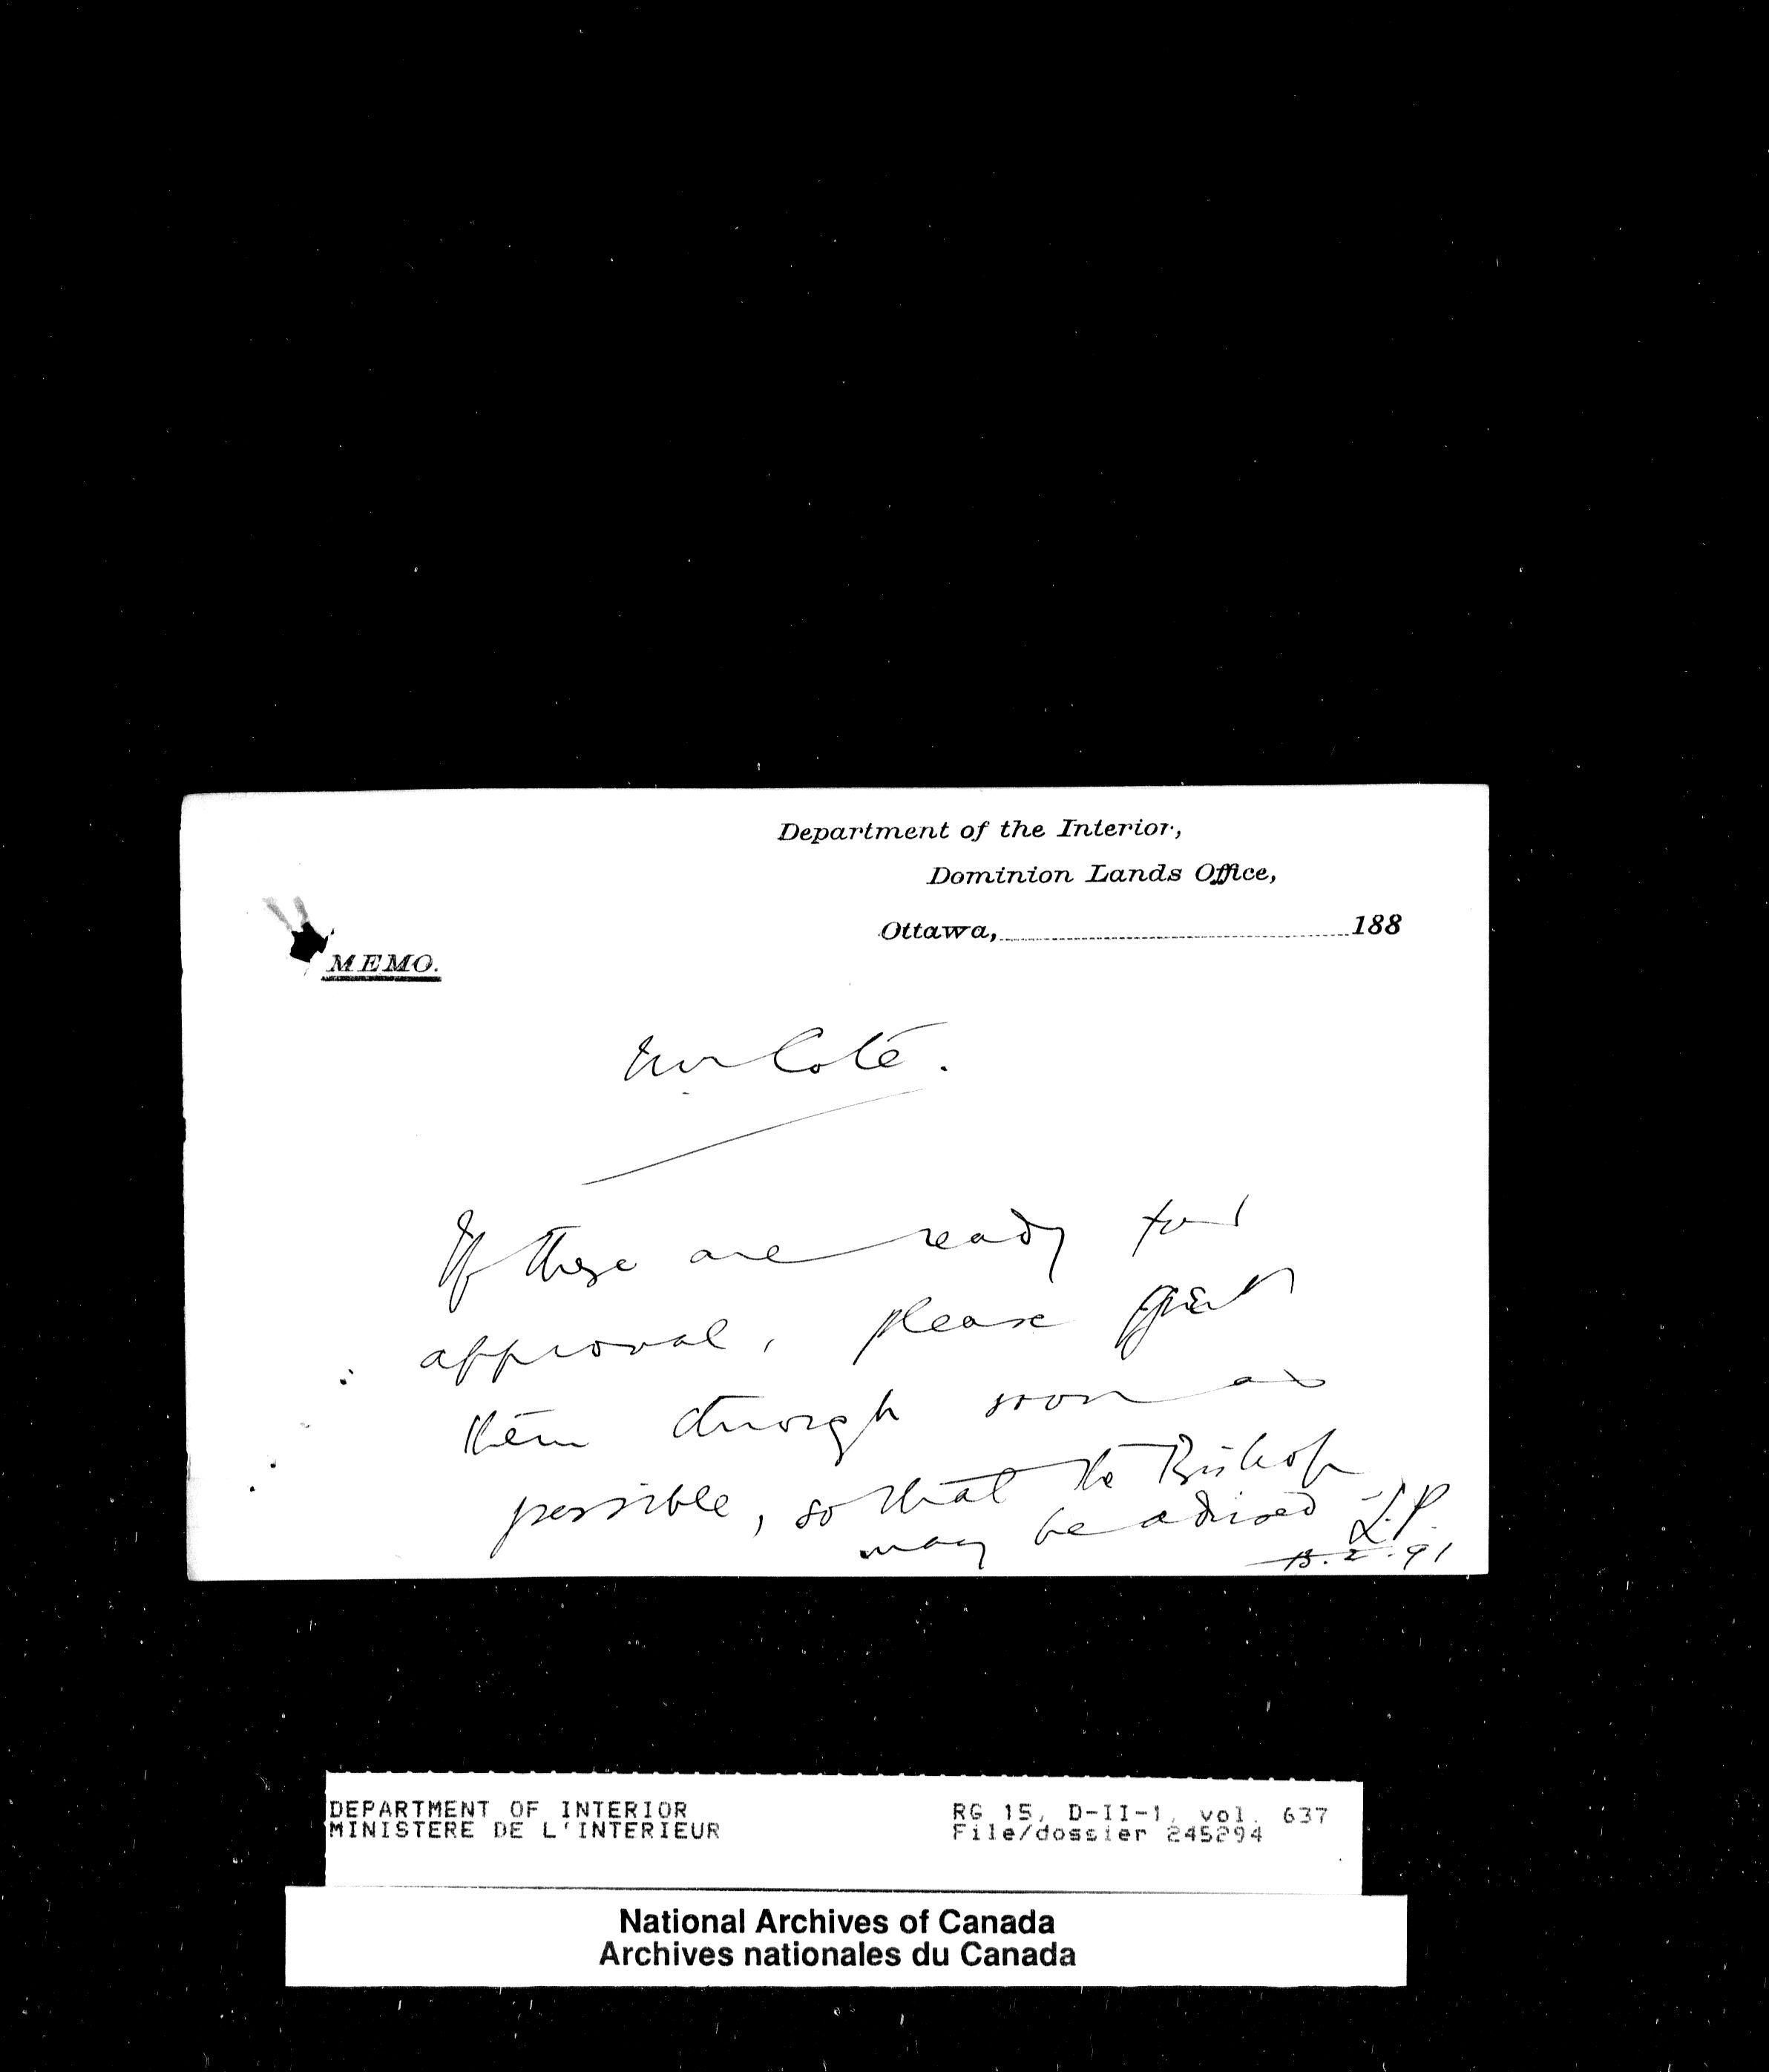 Department of the Interior,
Dominion Lands Office,
Ottawa, 188
MEMO.
Mr Coté.
If these are ready for
approval, please
them through soon as
possible, so that the Bishop
may be advised L.P.
13.2.91
DEPARTMENT OF INTERIOR
MINISTERE DE L'INTERIEUR
RG 15, D-II-1, vol. 637
File/dossier 245294
National Archives of Canada
Archives nationales du Canada